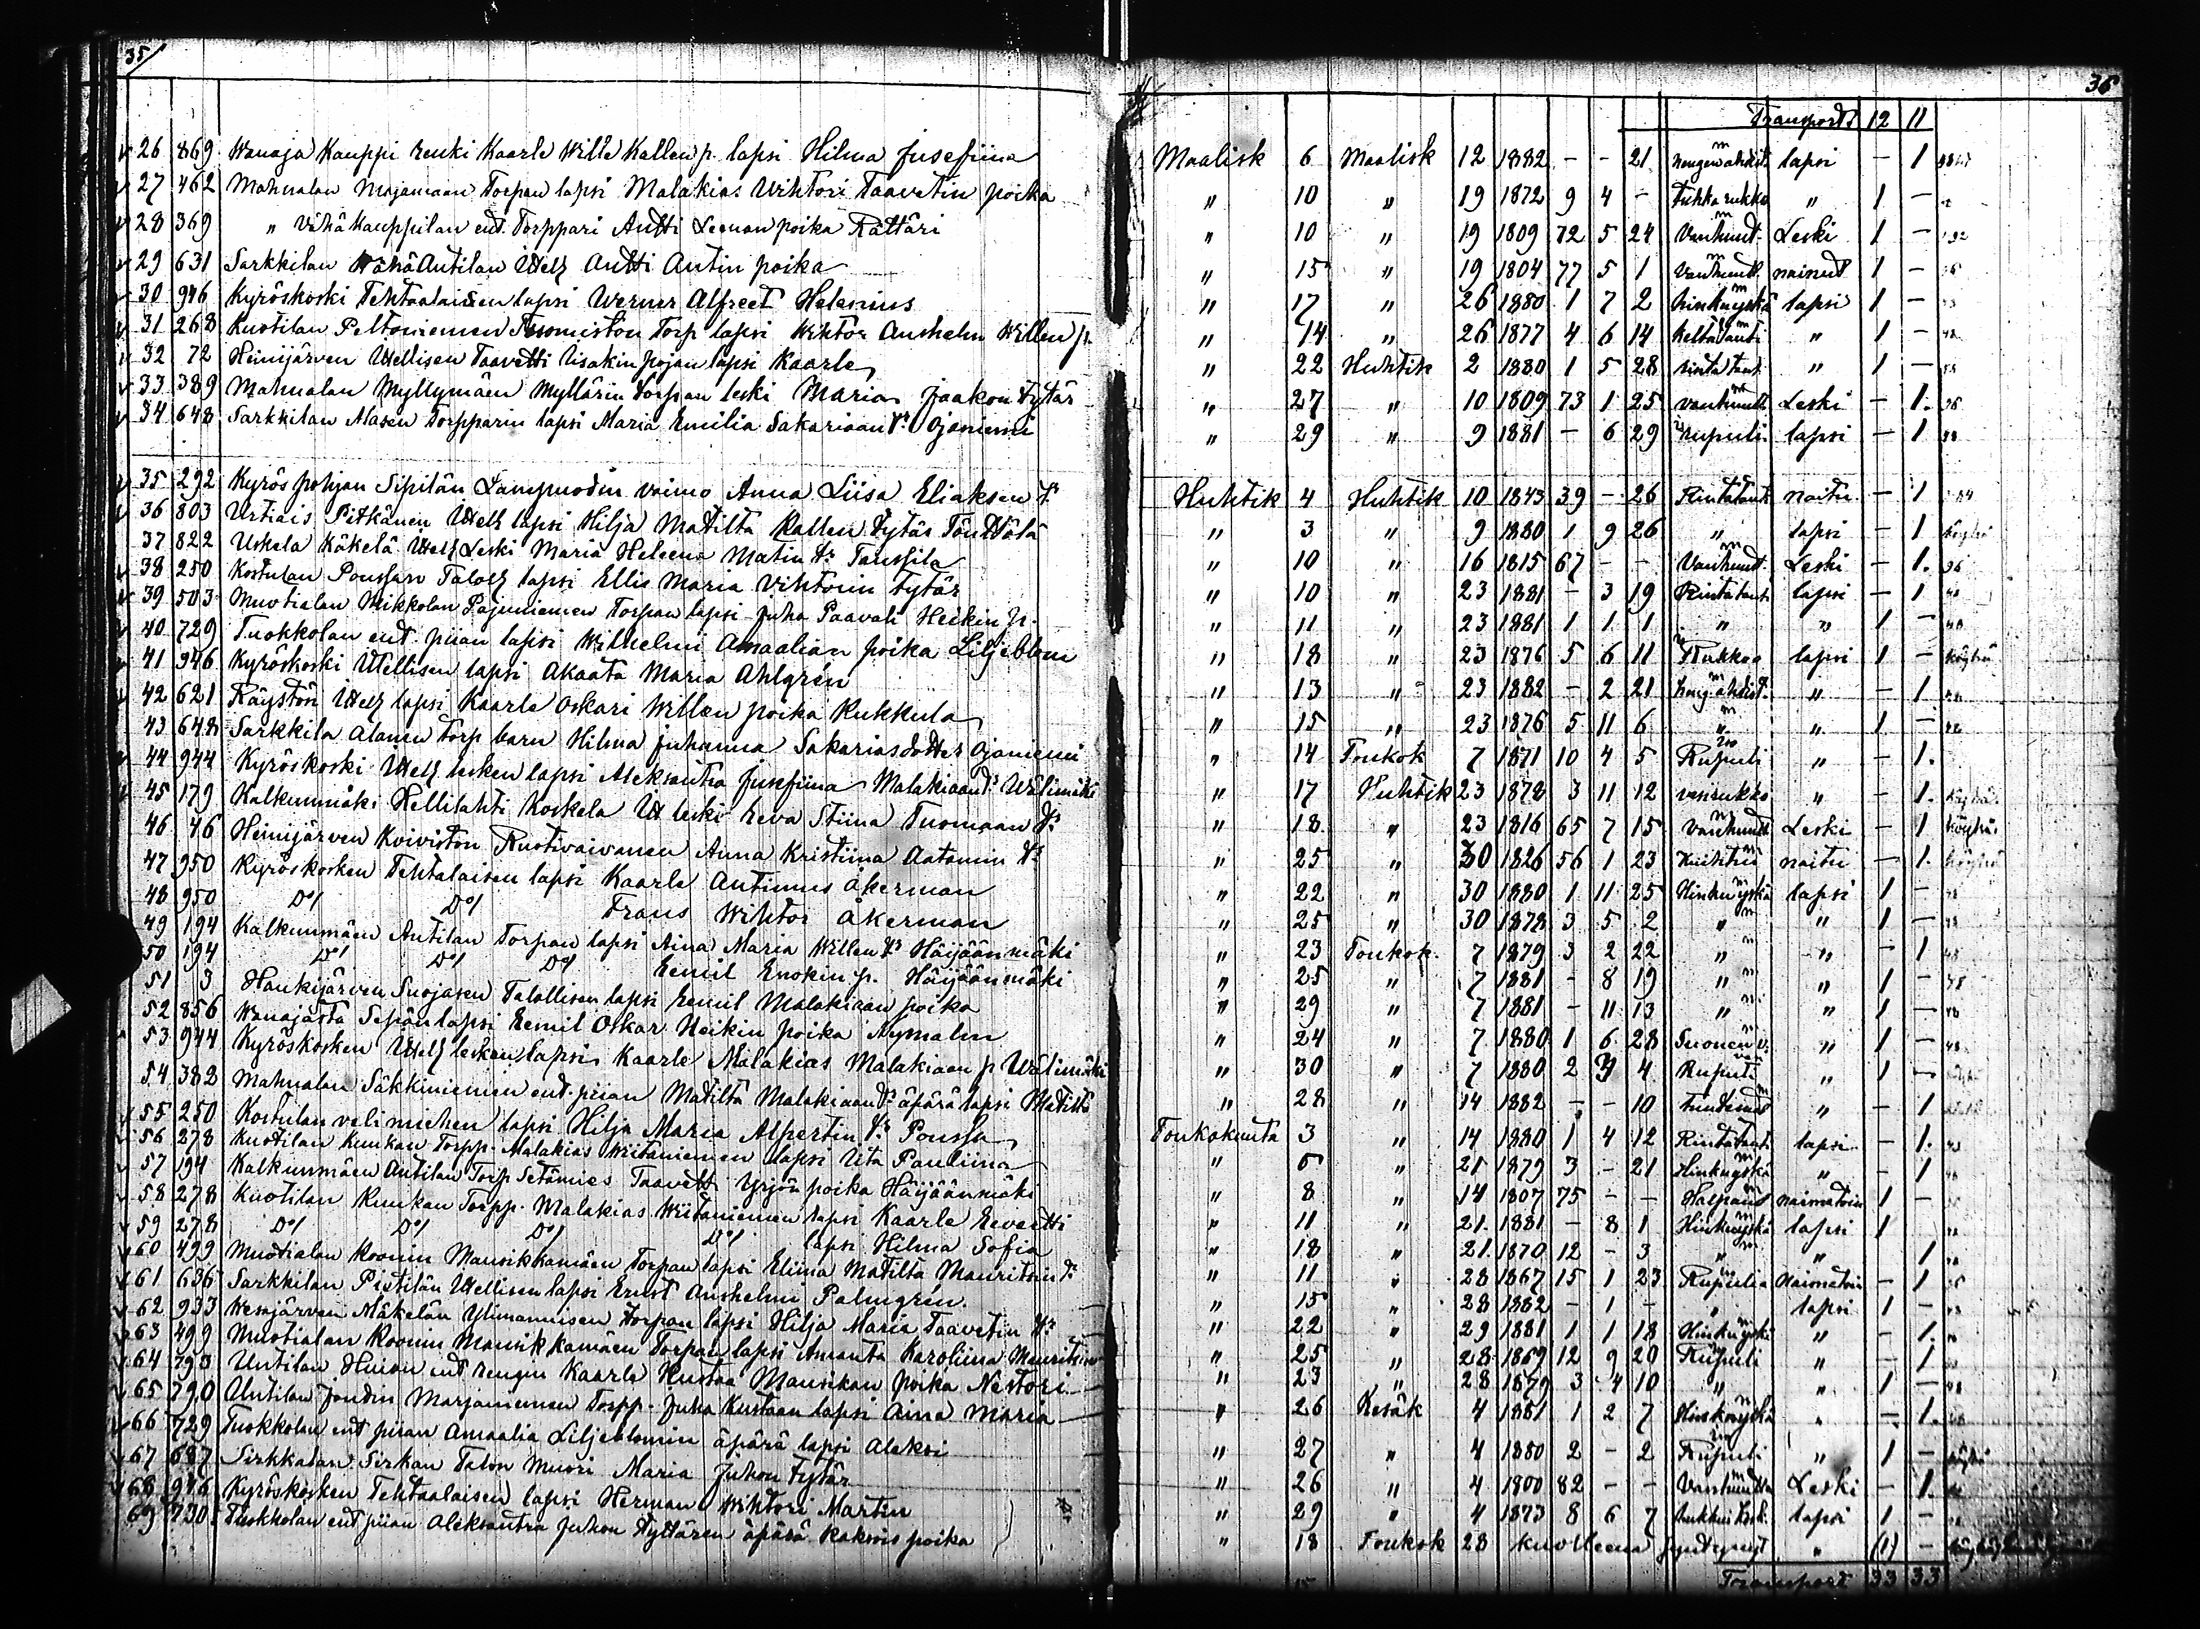 35
26 869 Wanaja Kauppi renki Kaarle Wille Kallen p. lapsi Hilma Jusefiina
27 462 Mahnalan Majamaan Torpan lapsi Malakias Wihtori Taavetin poika
28 369 " Vähä Kauppilan ent. Torppari Antti Leenan poika Rättäri
29 631 Sarkkilan Wähä Antilan Itell Antti Antin poika
30 946 Kyröskoski Tehtaalaisen lapsi Werner Alfreet Helenius
31 268 Kuotilan Peltoniemen Tuomistön Torp lapsi Wihtor Anshelm Willen p.
32 72 Heinijärven Itellisen Taavetti Iisakin pojan lapsi Kaarle
33 389 Mahnalan Myllymäen Myllärin Torpan leski Maria Jaakon Tytär
34 648 Sarkkilan Alasen Torpparin lapsi Maria Emilia Sakariaan tr Ojaniemi
35 292 Kyröspohjan Sipilän Lampuodin vaimo Anna Liisa Eliaksen tr
36 803 Urtiais Pitkänen Itell lapsi Hilja Matilta Kallen Tytär Tönttölä
37 822 Uskela Käkelä Itell Leski Maria Heleena Matin tr Taussila
38 250 Kostulan Poussan Taloll lapsi Ellis Maria Vihtorin tytär
39 503 Muotialan Mikkolan Pajuniemen Torpan lapsi Juha Paavali Heikin p.
40 729 Tuokkolan ent. piian lapsi Wilhelmi Amaalian poika Liljeblom
41 946 Kyröskoski Itellisen lapsi Akaata Maria Ahlgrén
42 621 Räystön Itell lapsi Kaarle Oskari Willen poika Kukkula
43 648 Sarkkila Alanen Torp barn Hilma Juhanna Sakariasdotter Ojaniemi
44 944 Kyröskoski Itell lesken lapsi Aleksantra Jusefiina Malakiaan tr Wälimäki
45 179 Kalkunmäki Hellilahti Koskela It leski Eeva Stiina Tuomaan tr
46 46 Heinijärven Koiviston Ruotivaivanen Anna Kristiina Aatamin tr
47 950 Kyröskosken Tehtalaisen lapsi Kaarle Antinus Åkerman
48 950 Do/ Do/ Frans Wihtor Åkerman
49 194 Kalkunmäen Antilan Torpan lapsi Aina Maria Willen tr Häijäänmäki
50 194 Do/ Do/ Do/ Eemil Enokin p. Häijäänmäki
51 3 Haukijärven Suojasen Talollisen lapsi Eemil Malakiaan poika
52 856 Wanajasta Sepän lapsi Eemil Oskar Heikin poika Nymalm
53 944 Kyröskosken Itell lesken lapsi Kaarle Malakias Malakiaan p Wälimäki
54 382 Mahnalan Säkkiniemen ent. piian Matilta Malakiaan tr äpärä lapsi Matilta
55 250 Kostulan velimiehen lapsi Hilja Maria Alpertin tr Poussa
56 278 Kuotilan Kuukan Torpp. Malakias Wiitaniemen lapsi Ita Pauliina
57 194 Kalkunmäen Antilan Torp Setämies Taavetti Yrjön poika Häijäänmäki
58 278 Kuotilan Kuukan Torpp. Malakias Wiitaniemen lapsi Kaarle Eevertti
59 278 Do/ Do/ Do/ Do/ lapsi Hilma Sofia
60 499 Muotialan Koonun Mansikkamäen Torpan lapsi Eliina Matilta Mauritsin tr
61 636 Sarkkilan Pietilän Itellisen lapsi Ernst Anshelmi Palmgrén.
62 933 Wesajärven Mäkelän Ylimannisen Torpan lapsi Hilja Maria Taavetin tr
63 499 Muotialan Koonun Mansikkamäen Torpan lapsi Amanta Karoliina Mauritsin
64 793 Untilan Huion ent rengin Kaarle Kustaa Mansikan poika Nestori
65 790 Untilan Jondin Marjaniemen Torpp. Juha Kustaan lapsi Aina Maria
66 729 Tuokkolan ent piian Amaalia Liljeblomin äpärä lapsi Aleksi
67 687 Sirkkalan Sirkan Talon Muori Maria Juhon Tytär
68 946 Kyröskosken Tehtaalaisen lapsi Herman Wihtori Martin
69 730 Tuokkolan ent piian Aleksantra Juhon Tyttären äpärä kaksois poika
36
Transport 12 11
Maalisk 6 Maalisk 12 1882 - - 21 lapsi - 1
" 10 " 19 1872 9 4 - Tuhkarukko " 1 -
" 10 " 19 1809 72 5 24 Vanhuud. Leski 1 -
" 15 " 19 1804 77 5 1 Vanhuud. nainut 1 -
" 17 " 26 1880 1 7 2 hinkuyskä lapsi 1 -
" 14 " 26 1877 4 6 14 Keltatauti " 1 -
" 22 Huhtik 2 1880 1 5 28 rinta taut. " 1 -
" 27 " 10 1809 73 1 25 vanhuud. Leski - 1.
" 29 " 9 1881 - 6 29 rupuli lapsi - 1
Huhtik 4 Huhtik 10 1843 39 - 26 Rintataut. naitu - 1
" 3 " 9 1880 1 9 26 " lapsi - 1 köyhä
" 10 " 16 1815 67 - - Vanhuud. Leski - 1.
" 10 " 23 1881 - 3 19 Rintataut. lapsi - 1
" 11 " 23 1881 1 1 1 " " 1 -
" 18 " 23 1876 5 6 11 Rukkoo lapsi 1 - köyhä
" 13 " 23 1882 - 2 21 heng. ahdist. " - 1
" 15 " 23 1876 5 11 6 " " 1 -
" 14 Toukok 7 1871 10 4 5 Rupuli " - 1.
" 17 Huhtik 23 1878 3 11 12 vesirukko " - 1. köyhä
" 18 " 23 1816 65 7 15 Vanhuud. Leski - 1 köyhä
" 25 " 30 1826 56 1 23 naitu - 1. köyhä
" 22 " 30 1880 1 11 25 Hinkuyskä lapsi 1 -
" 25 " 30 1878 3 5 2 " " 1 -
" 23 Toukok. 7 1879 3 2 22 " " - 1
" 25 " 7 1881 - 8 19 " " 1 -
" 29 " 7 1881 - 11 13 " " 1 -
" 24 " 7 1880 1 6 28 Suonenv. " 1 -
" 30 " 7 1880 2 4 Rupuli " 1 -
" 28 " 14 1882 - - 10 " - 1
Toukokuuta 3 " 14 1880 1 4 12 Rintataut. lapsi - 1.
" 5 " 21 1879 3 - 21 Hinkuyskä " - 1
" 8 " 14 1807 75 - - Halpaus naimatoin 1 -
" 11 " 21. 1881 - 8 1 Hinkuyskä lapsi 1
" 18 " 21. 1870 12 - 3 " " 1
" 11 " 28 1867 15 1 23 Rupulia Naimatoin - 1
" 15 " 28 1882 - 1 - " lapsi 1 -
" 22 " 29 1881 1 1 18 Hinkuyskä " - 1.
" 25 " 28 1869 12 9 20 Rupuli " - 1
" 23 " 28 1879 3 4 10 " " 1 -
" 26 Kesäk 4 1881 1 2 7 Hinkuyskä " - 1.
" 27 " 4 1880 2 - 2 Rupuli " 1 - köyhä
" 26 " 4 1800 82 - - Vanhuutta Leski - 1.
" 29 " 4 1873 8 6 7 lapsi 1 -
" 18 Toukok 28 kuolleena syntynyt " (1) -
Transport 33 33